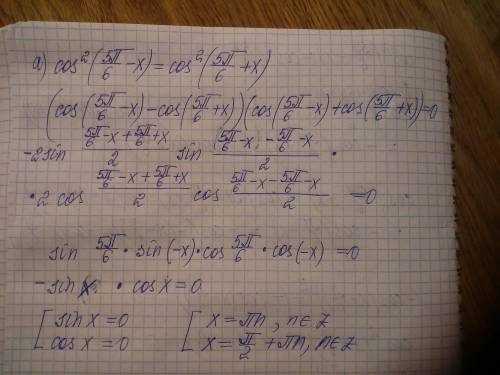 а) cos²(5π/6 −x) = cos²(5π/6 +x)
(cos(5π/6 −x) − cos(5π/6 +x))(cos(5π/6 −x) + cos(5π/6 +x)) = 0
−2sin (5π/6 −x + 5π/6 +x)/2 sin (5π/6 −x − 5π/6 −x)/2 ·
· 2 cos (5π/6 −x + 5π/6 +x)/2 cos (5π/6 −x − 5π/6 −x)/2 = 0
sin 5π/6 · sin(−x) · cos 5π/6 · cos(−x) = 0
− sin x · cos x = 0
[ sin x = 0 [ x = πn, n∈Z
cos x = 0 x = π/2 + πn, n∈Z